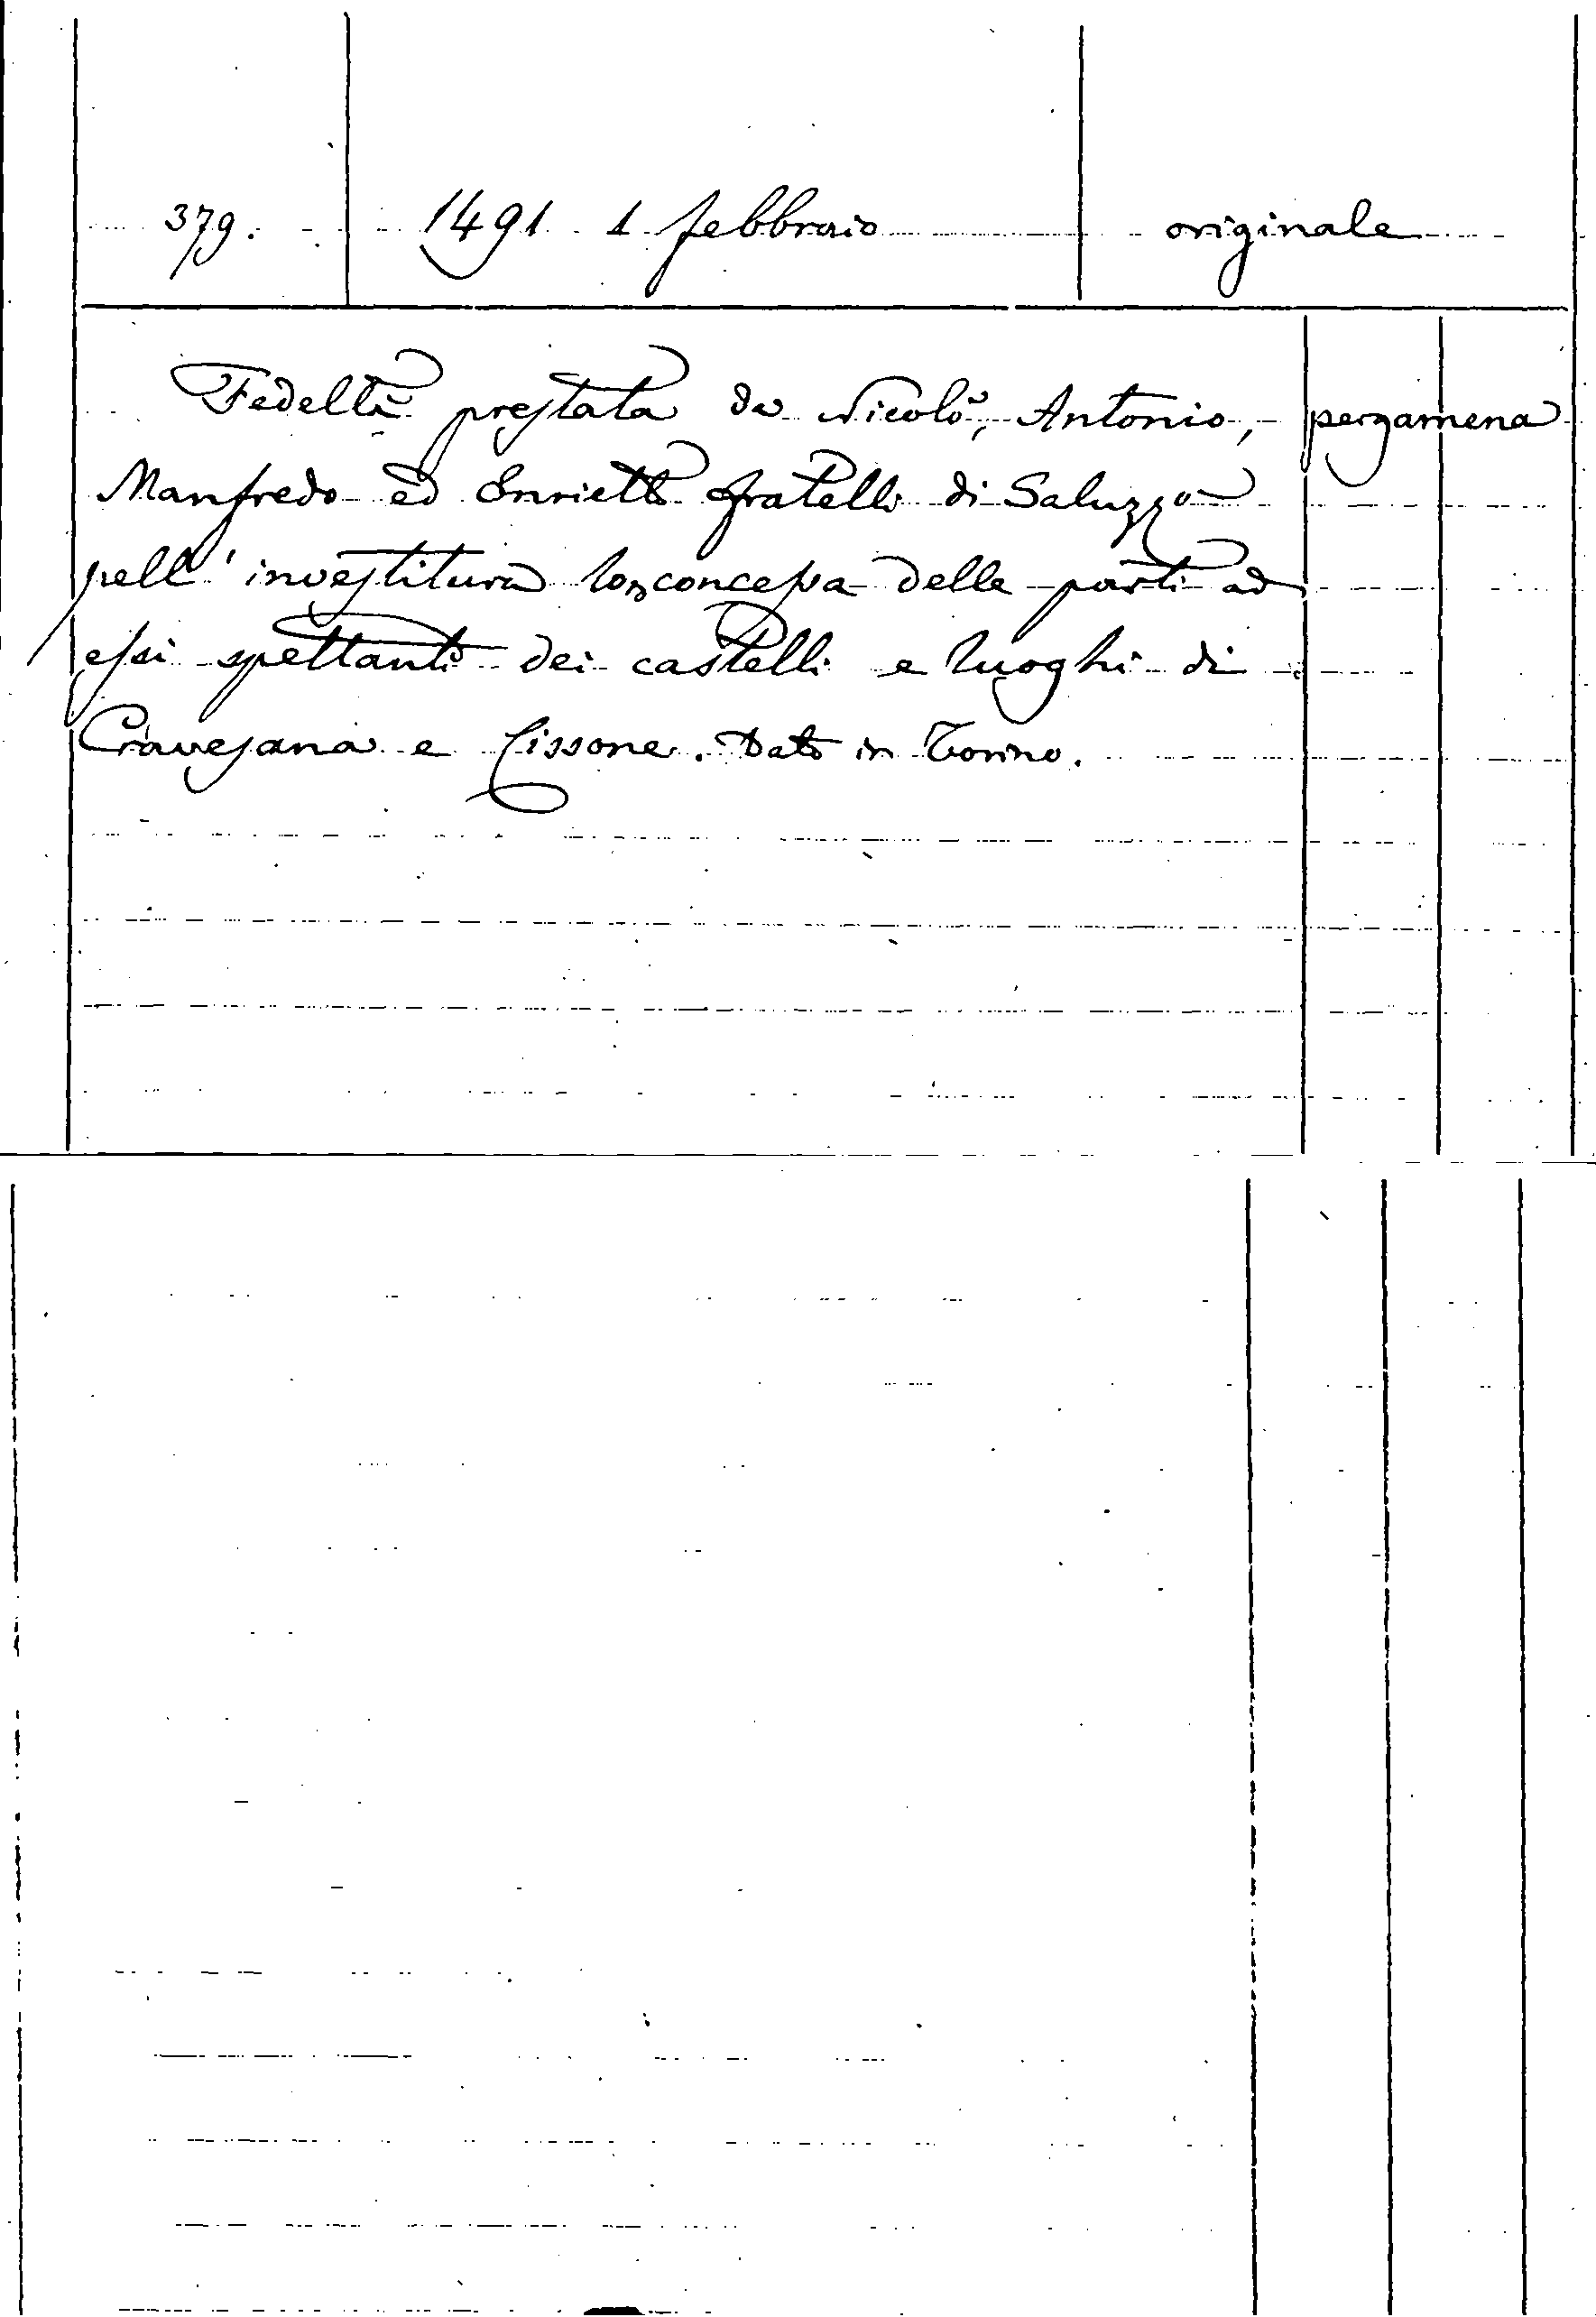 379. 1491 1 febbraio originale
Fedeltà prestata da Nicolò, Antonio, pergamena
Manfredo ed Enrietto fratelli di Saluzzo
pell' investitura lor concessa delle parti ad
essi spettanti dei castelli e luoghi di
Cravesana e Cissone. Dato in Torino.